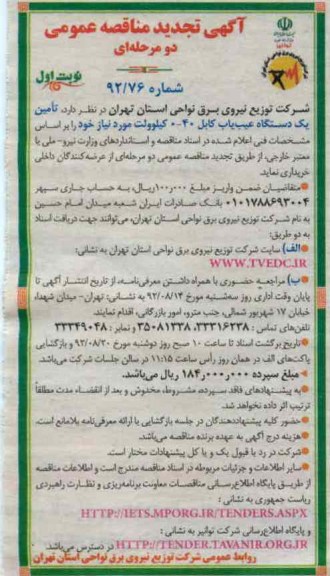 آگهی تجدید مناقصه عمومی
دو مرحله‌ای
نوبت اول
شماره ۹۲/۷۶
شرکت توزیع نیروی برق نواحی استان تهران در نظر دارد، تأمین
یک دستگاه عیب‌یاب کابل ۴۰-۰ کیلوولت مورد نیاز خود را بر اساس
مشخصات فنی اعلام شده در اسناد مناقصه و استانداردهای وزارت نیرو- ملی یا
معتبر خارجی، از طریق تجدید مناقصه عمومی دو مرحله‌ای از عرضه‌کنندگان داخلی
خریداری نماید.
متقاضیان ضمن واریز مبلغ ۱۰۰٫۰۰۰ریال، به حساب جاری سپهر
۰۱۰۱۷۸۸۶۹۳۰۰۴ بانک صادرات ایران شعبه میدان امام حسین
به نام شرکت توزیع نیروی برق نواحی استان تهران، می‌توانند جهت دریافت اسناد
به دو طریق:
الف) سایت شرکت توزیع نیروی برق نواحی استان تهران به نشانی:
WWW.TVEDC.IR
ب) مراجعه حضوری با همراه داشتن معرفی‌نامه، از تاریخ انتشار آگهی تا
پایان وقت اداری روز سه‌شنبه مورخ ۹۲/۰۸/۱۴ به نشانی: تهران- میدان شهدا،
خیابان ۱۷ شهریور شمالی، جنب مترو، امور بازرگانی، اقدام نمایند.
تلفن‌های تماس: ۳۳۳۱۶۲۳۸، ۳۵۰۸۱۲۳۸ و نمابر: ۳۳۳۴۹۰۴۸
تاریخ برگشت اسناد تا ساعت ۱۰ صبح روز دوشنبه مورخ ۹۲/۰۸/۲۰ و بازگشایی
پاکت‌های الف در همان روز رأس ساعت ۱۱:۱۵ در سالن جلسات شرکت می‌باشد.
مبلغ سپرده ۱۸۴٫۰۰۰٫۰۰۰ ریال می‌باشد.
به پیشنهادهای فاقد سپرده، مشروط، مخدوش و بعد از انقضاء مدت مطلقاً
ترتیب اثر داده نخواهد شد.
حضور کلیه پیشنهاددهندگان در جلسه بازگشایی با ارائه معرفی‌نامه بلامانع است.
هزینه درج آگهی به عهده برنده مناقصه می‌باشد.
شرکت در رد یا قبول یک و یا کل پیشنهادات مختار است.
سایر اطلاعات و جزئیات مربوطه در اسناد مناقصه مندرج است و اطلاعات مناقصه
از طریق پایگاه اطلاع‌رسانی مناقصات معاونت برنامه‌ریزی و نظارت راهبردی
ریاست جمهوری به نشانی:
HTTP://IETS.MPORG.IR/TENDERS.ASPX
و پایگاه اطلاع‌رسانی شرکت توانیر به نشانی:
HTTP://TENDER.TAVANIR.ORG.IR در دسترس می‌باشد.
روابط عمومی شرکت توزیع نیروی برق نواحی استان تهران